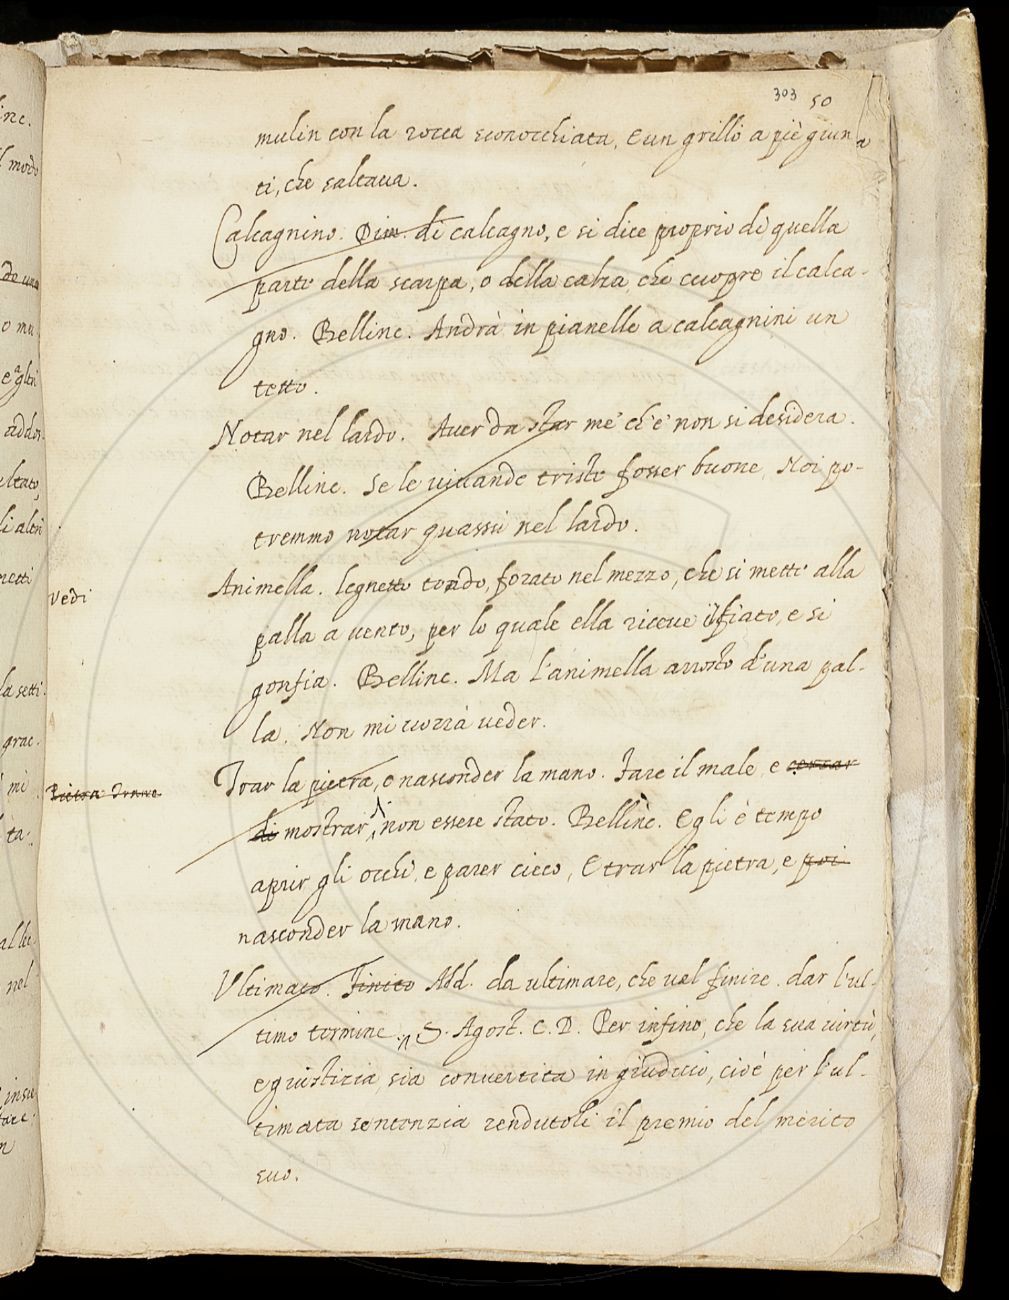 303 50
mulin con la rocca sconocchiata, e un grillo a piè giun
ti, che saltaua.
Calcagnino. Dim. di calcagno, e si dice proprio di quella
parte della scarpa, o della calza, che cuopre il calca-
gno. Bellinc. Andrà in pianelle a calcagnini un
tetto.
Notar nel lardo. Auer da star me' ch'e' non si desidera.
Bellinc. Se le viuande triste fosser buone, Noi po-
tremmo notar quassù nel lardo.
Vedi
Animella. legnetto tondo, forato nel mezzo, che si mette alla
palla a uento, per lo quale ella riceue il fiato, e si
gonfia. Bellinc. Ma l'animella arrosto d'una pal-
la. Non mi uorrà ueder.
Trar la pietra, e nasconder la mano. Fare il male, e cercar
Pietra Trarre
di mostrar, non essere stato. Bellinc. Egli è tempo
aprir gli occhi, e parer cieco, E trar la pietra, e poi
nasconder la mano.
Vltimato. Finito Add. da ultimare, che ual finire. dar l'ul-
timo termine. S. Agost. C. D. Per infino, che la sua uirtù,
e giustizia, sia conuertita in giudicio, cioè per l'ul-
timata sentenzia rendutoli il premio del merito
suo.